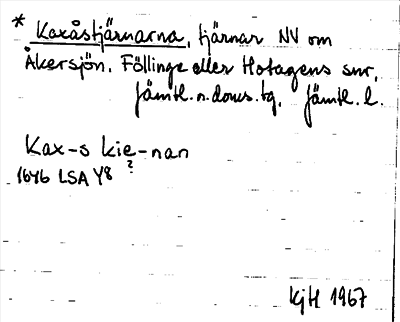 * Kaxåstjärnarna, tjärnar NV om
Åkersjön. Föllinge eller Hotagens snr,
Jämtl.n.doms.tg. Jämtl.l.
Kax-s kie-nan
?
1646 LSA Y8
KjH 1967